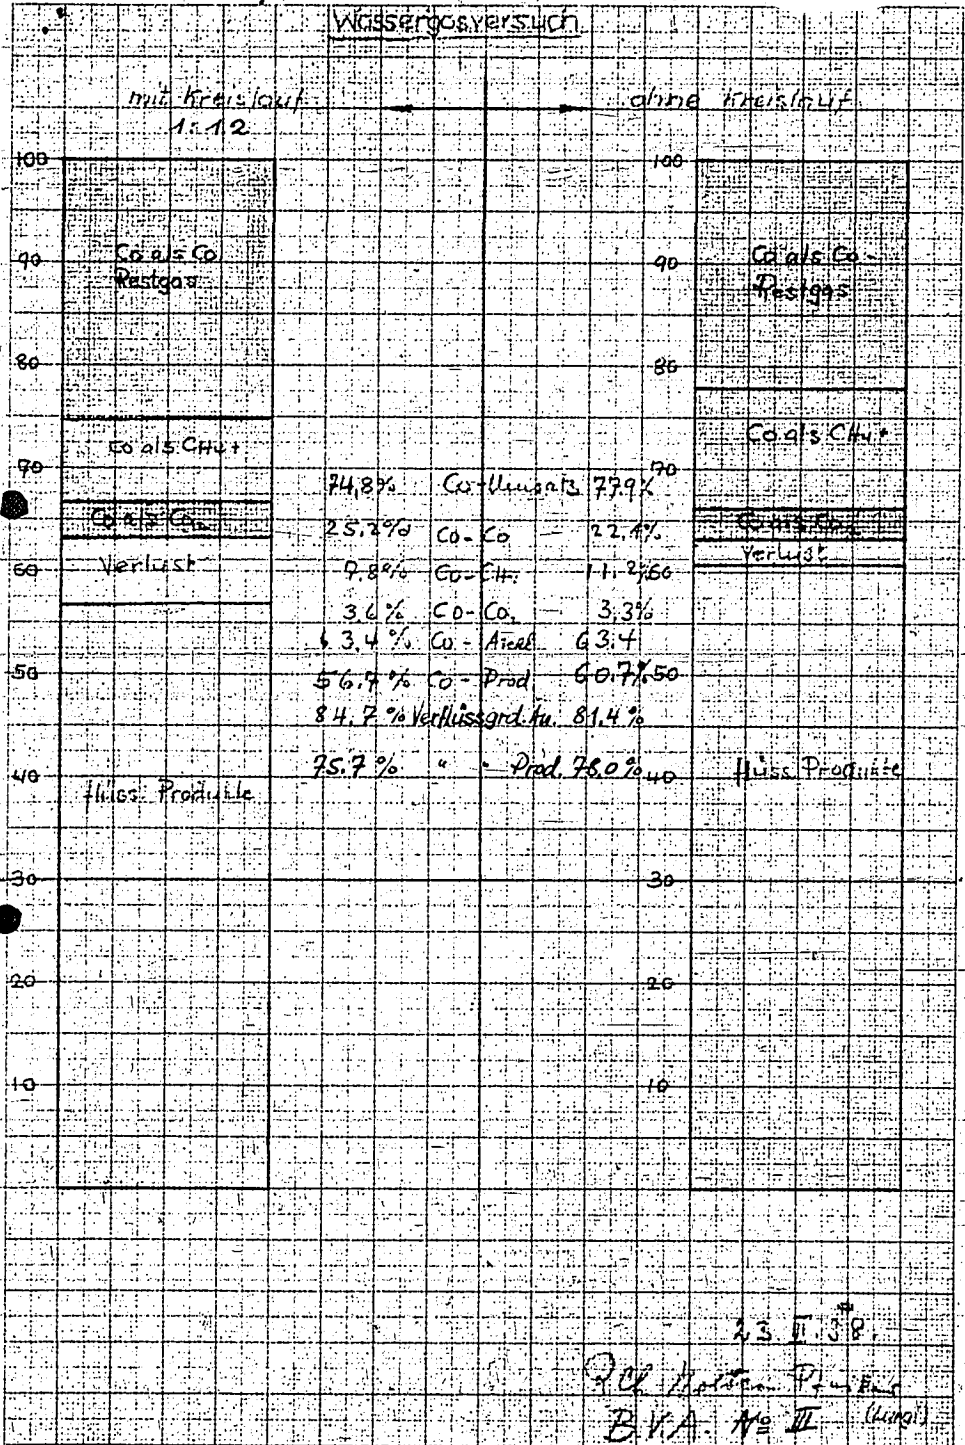 Wassergasversuch
mit Kreislauf
1:1.2
ohne Kreislauf
100
90
80
70
60
50
40
30
20
10
Co als Co
Restgas
Co als CH4+
Co als Co2
Verlust
flüss. Produkte
74,8% Co-Umsatz 77.9%
25.2% Co-Co 22.1%
7.8% Co-CH4 11.2%
3.6% Co-Co2 3.3%
63.4% Co- 63.4
56.7% Co-Prod 60.7%
84.7% Verflüssgrd. Au. 81.4%
75.7% " - Prod. 78.0%
100
90
80
70
60
50
40
30
20
10
Co als Co-
Restgas
Co als CH4+
Co als Co2
Verlust
flüss. Produkte
23 II. 38.
B.V.A. No III (Lurgi)